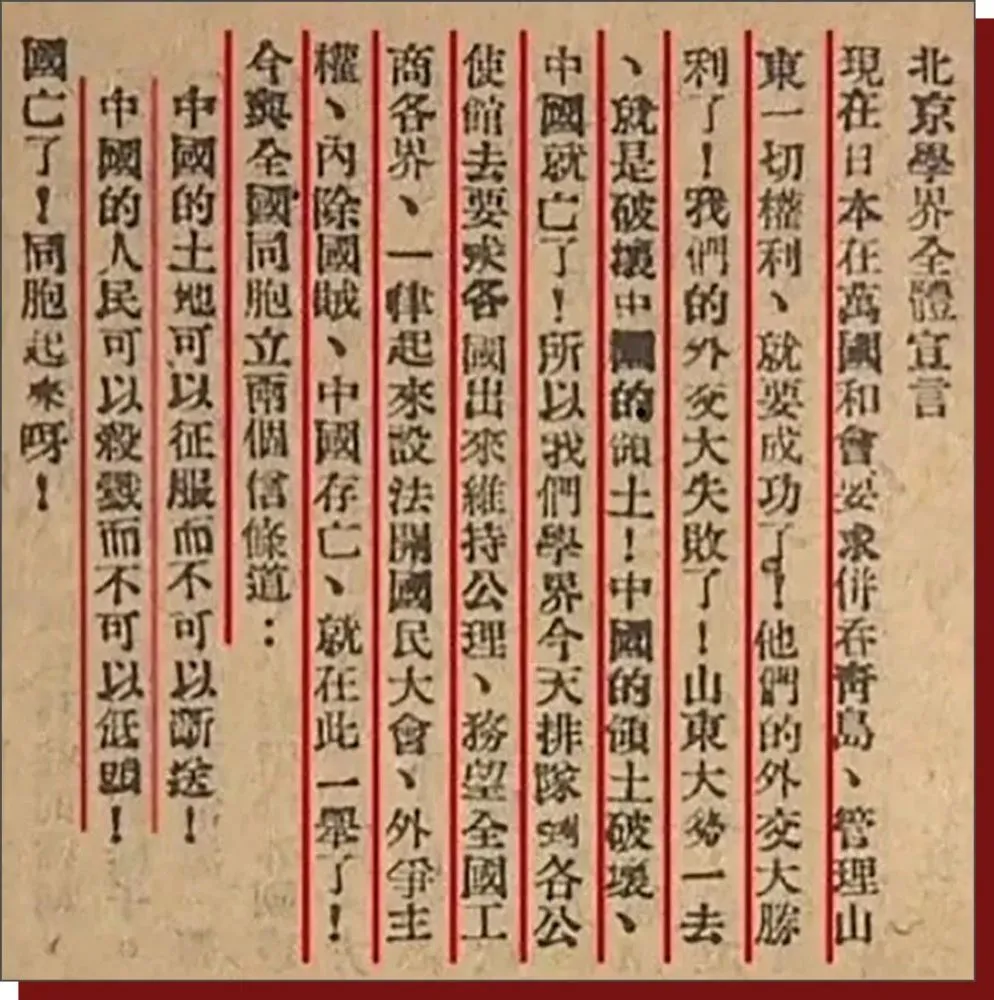 北京學界全體宣言
現在日本在萬國和會要求併吞靑島、管理山
東一切權利、就要成功了!他們的外交大勝
利了!我們的外交大失敗了!山東大勢一去
、就是破壞中國的領土!中國的領土破壞、
中國就亡了!所以我們學界今天排隊到各公
使館去要求各國出來維持公理、務望全國工
商各界、一律起來設法開國民大會、外爭主
權、內除國賊、中國存亡、就在此一舉了!
今與全國同胞立兩個信條道:
中國的土地可以征服而不可以斷送!
中國的人民可以殺戮而不可以低頭!
國亡了!同胞起來呀!